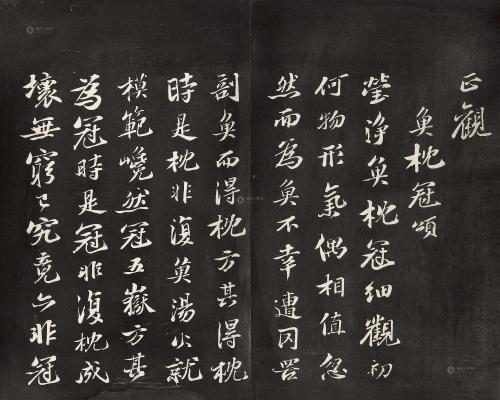 正觀
魚枕冠頌
瑩淨魚枕冠細觀初
何物形氣偶相值忽
然而為魚不幸遭网罟
剖魚而得枕方其得枕
時是枕非復魚湯火就
模範巉然冠五嶽方其
為冠時是冠非復枕成
壞無窮已究竟亦非冠